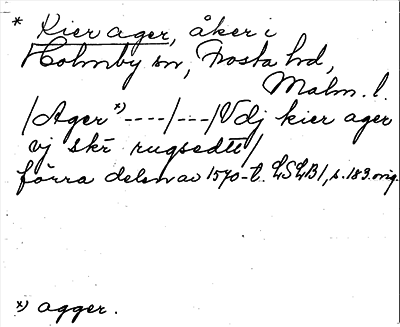 * Kier ager, åker i
Holmby sn, Frosta hd,
Malm. l.
/Ager x) ----/---/Vdj kier ager
vj skr rugsedtt/
förra delen av 1570-t. LSLB1, s. 183. orig.
x) agger.